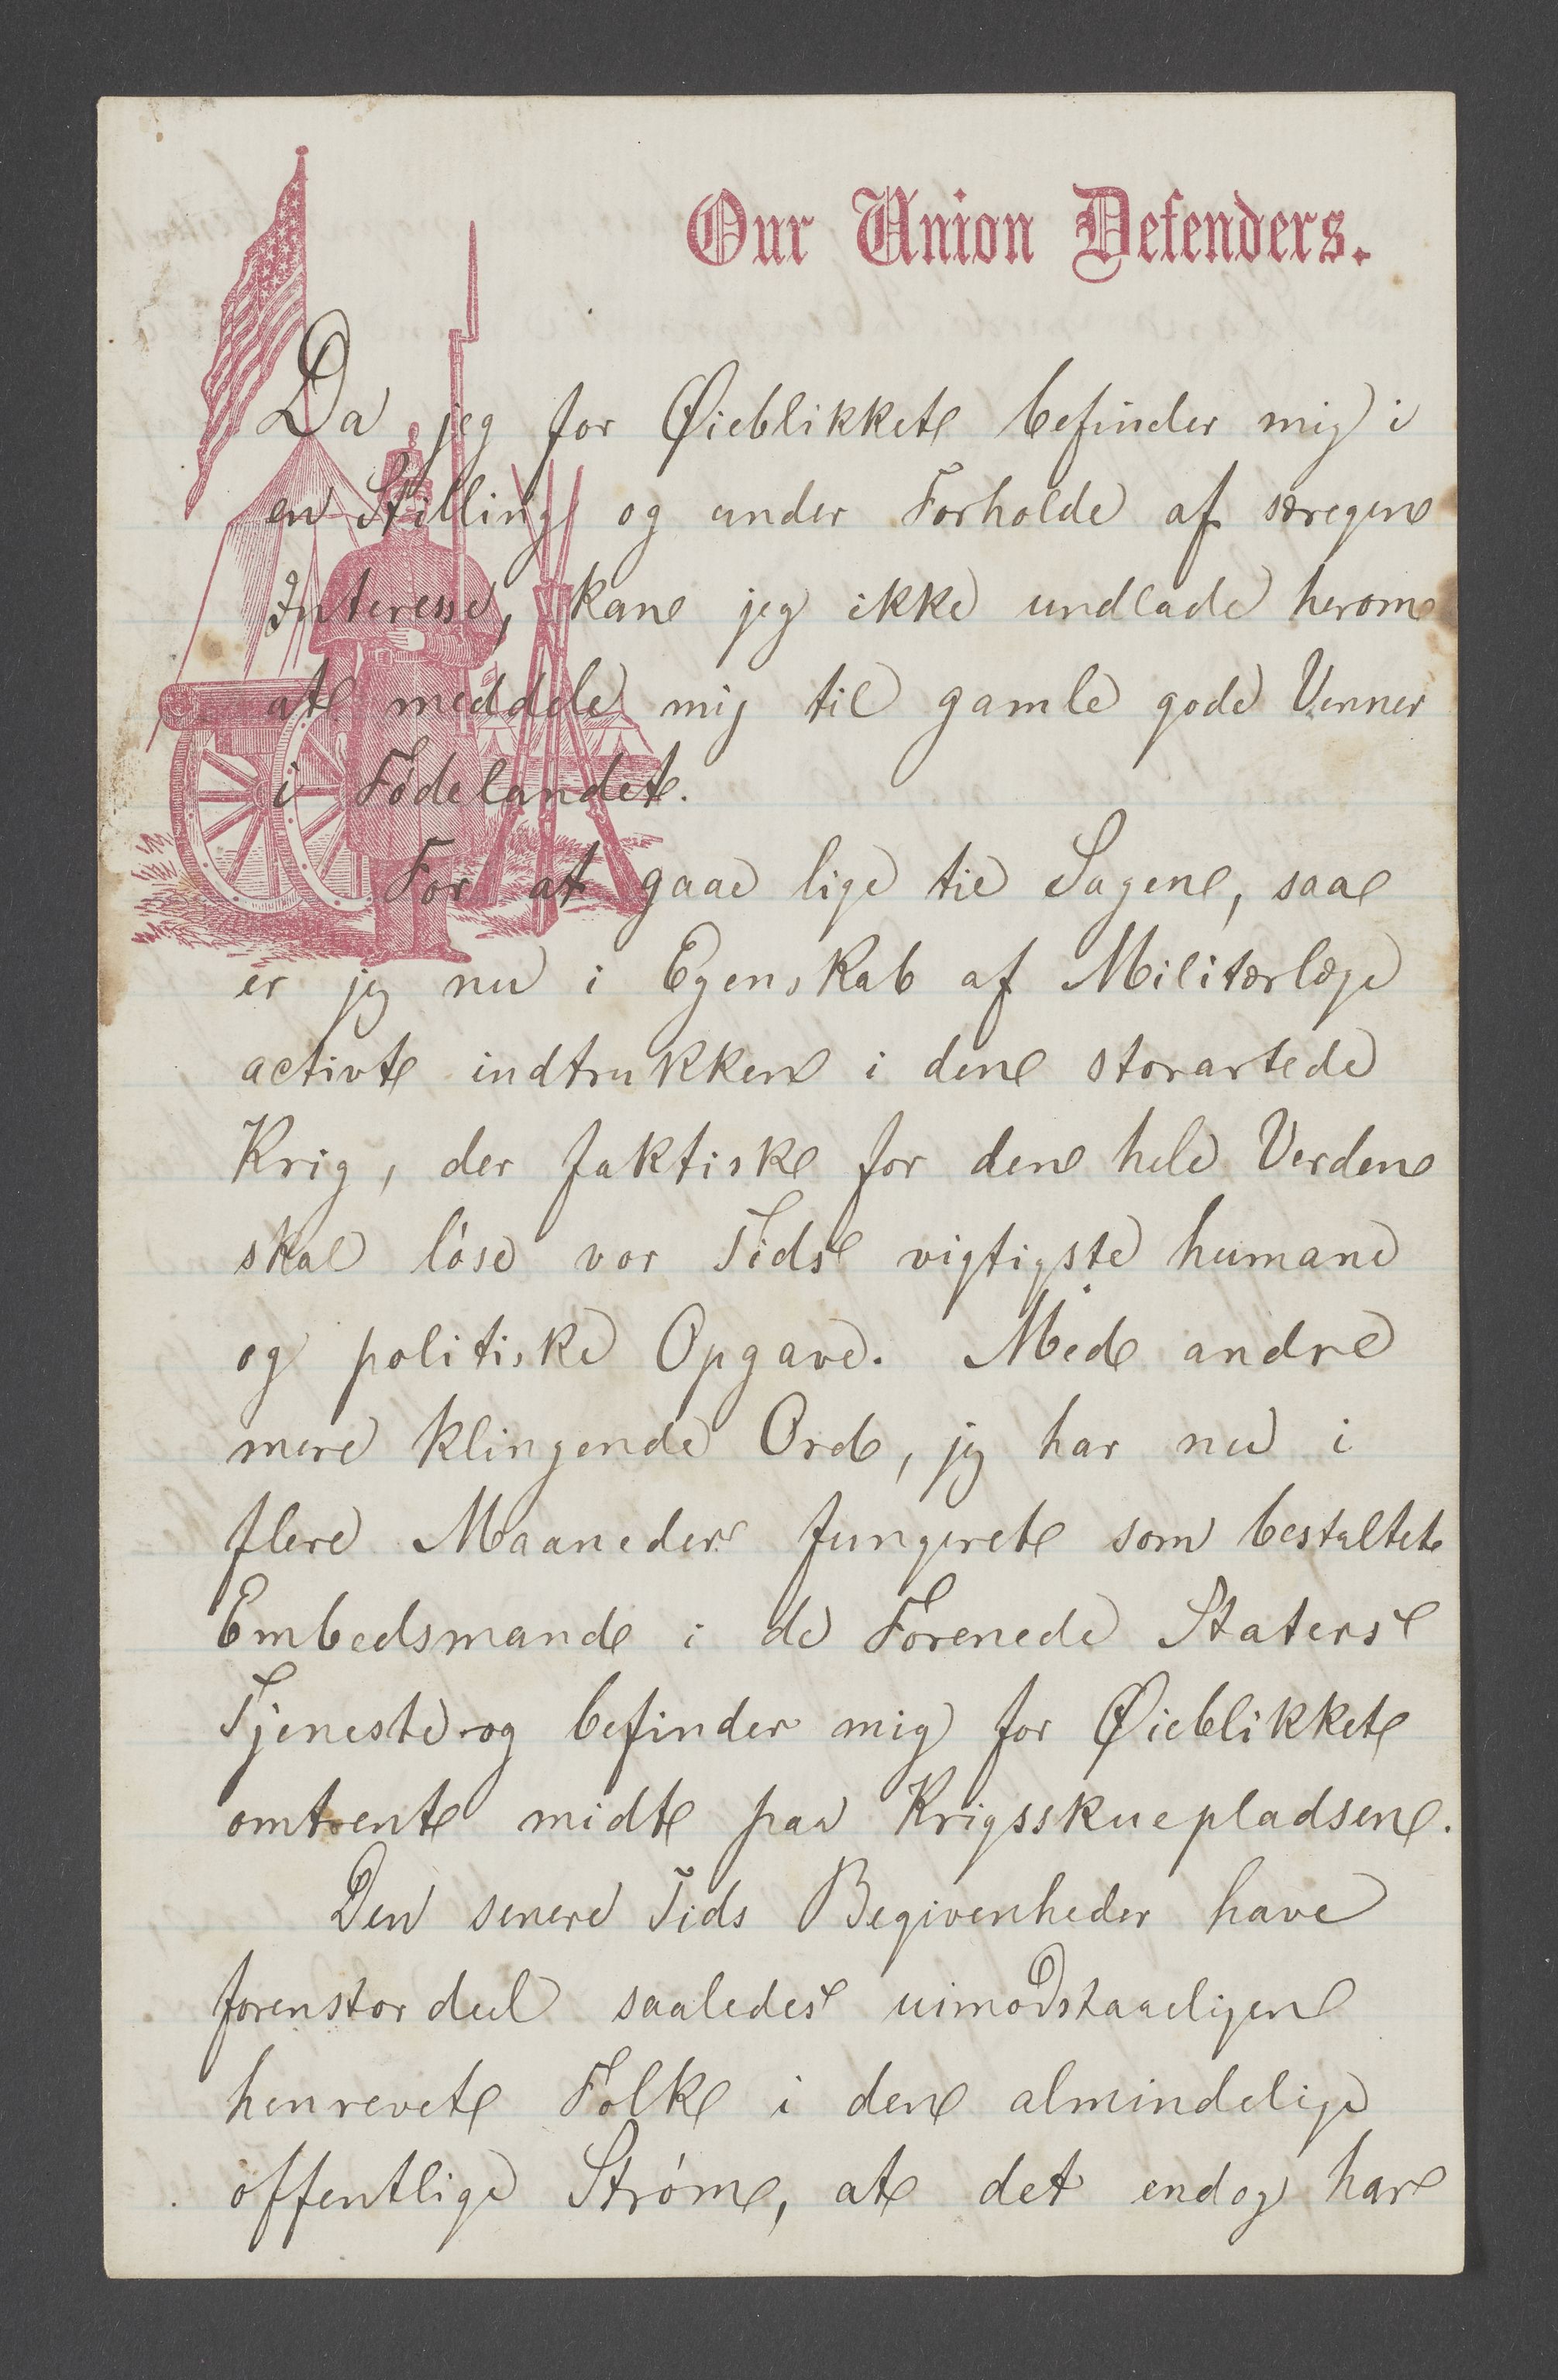 Our Union Defenders.
Da jeg for Øieblikket befinder mig i
en Stilling og under Forholde af særegen
Interesse, kan jeg ikke undlade herom
at meddele mig til gamle gode Venner
i Födelandet.
For at gaae lige til Sagen, saa
er jeg nu i Egenskab af Militærlæge
activt indtrukken i den storartede
Krig, der faktisk for den hele Verden
skal löse vor Tids vigtigste humane
og politiske Opgave. Med andre
mere klingende Ord, jeg har nu i
flere Maaneder fungeret som bestaltet
Embedsmand i de Forenede Staters
Tjeneste og befinder mig for Øieblikket
omtrent midt paa Krigsskuepladsen.
Den senere Tids Begivenheder have
forenstordeel saaledes uimodstaaeligen
henrevet Folk i den almindelige
offentlige Ström, at det endog har